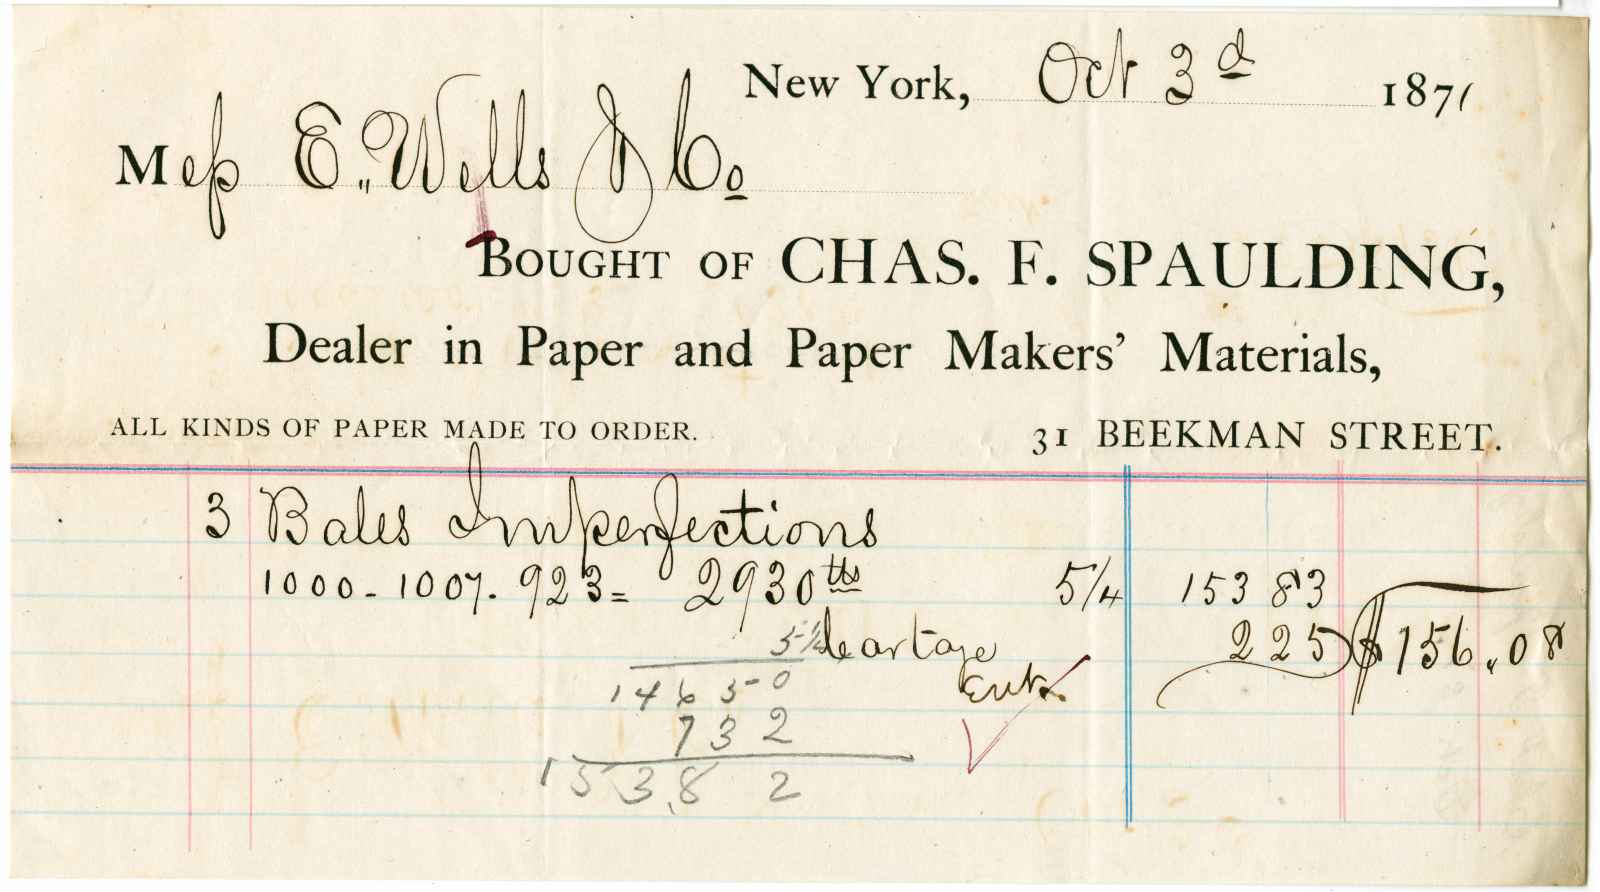 New York, Oct 3d 1871
Mess E. Wells & Co
BOUGHT OF CHAS. F. SPAULDING,
Dealer in Paper and Paper Makers' Materials,
ALL KINDS OF PAPER MADE TO ORDER. 31 BEEKMAN STREET.
3 Bales Imperfections
1000 - 1007. 923 = 2930 lbs 5 1/4 153 83
Cartage 2 25 $156.08
5 1/4
Ent.
14650
732
153,82